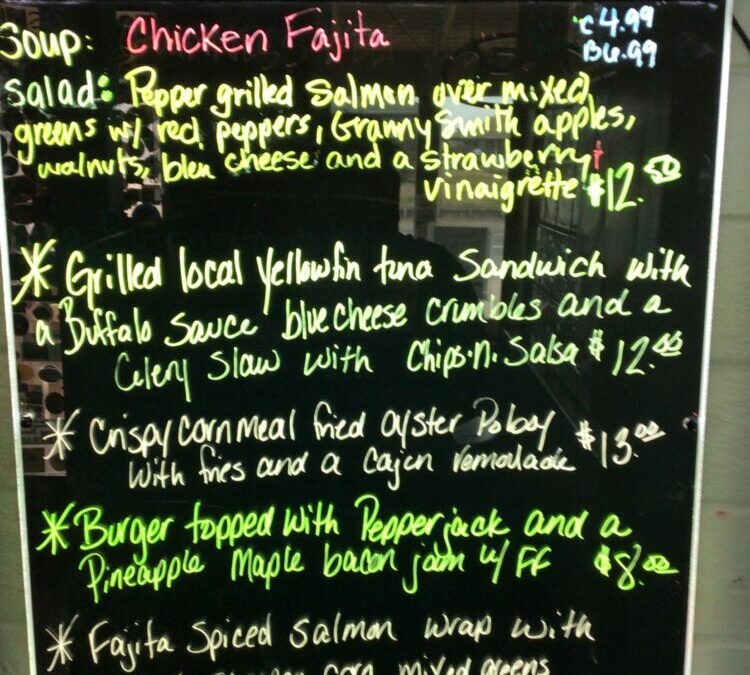 Soup: Chicken Fajita C 4.99
B 6.99
Salad: Pepper grilled Salmon over mixed
greens w/ red peppers, Granny Smith apples,
walnuts, bleu cheese and a strawberry
vinaigrette $12.50
* Grilled local yellowfin tuna Sandwich with
a Buffalo Sauce blue cheese crumbles and a
Celery Slaw with Chips.n.Salsa $12.00
* Crispy cornmeal fried oyster Poboy $13.00
with fries and a Cajun remoulade
* Burger topped with Pepperjack and a
Pineapple Maple bacon jam w/ FF $8.00
* Fajita Spiced Salmon wrap with
corn mixed greens